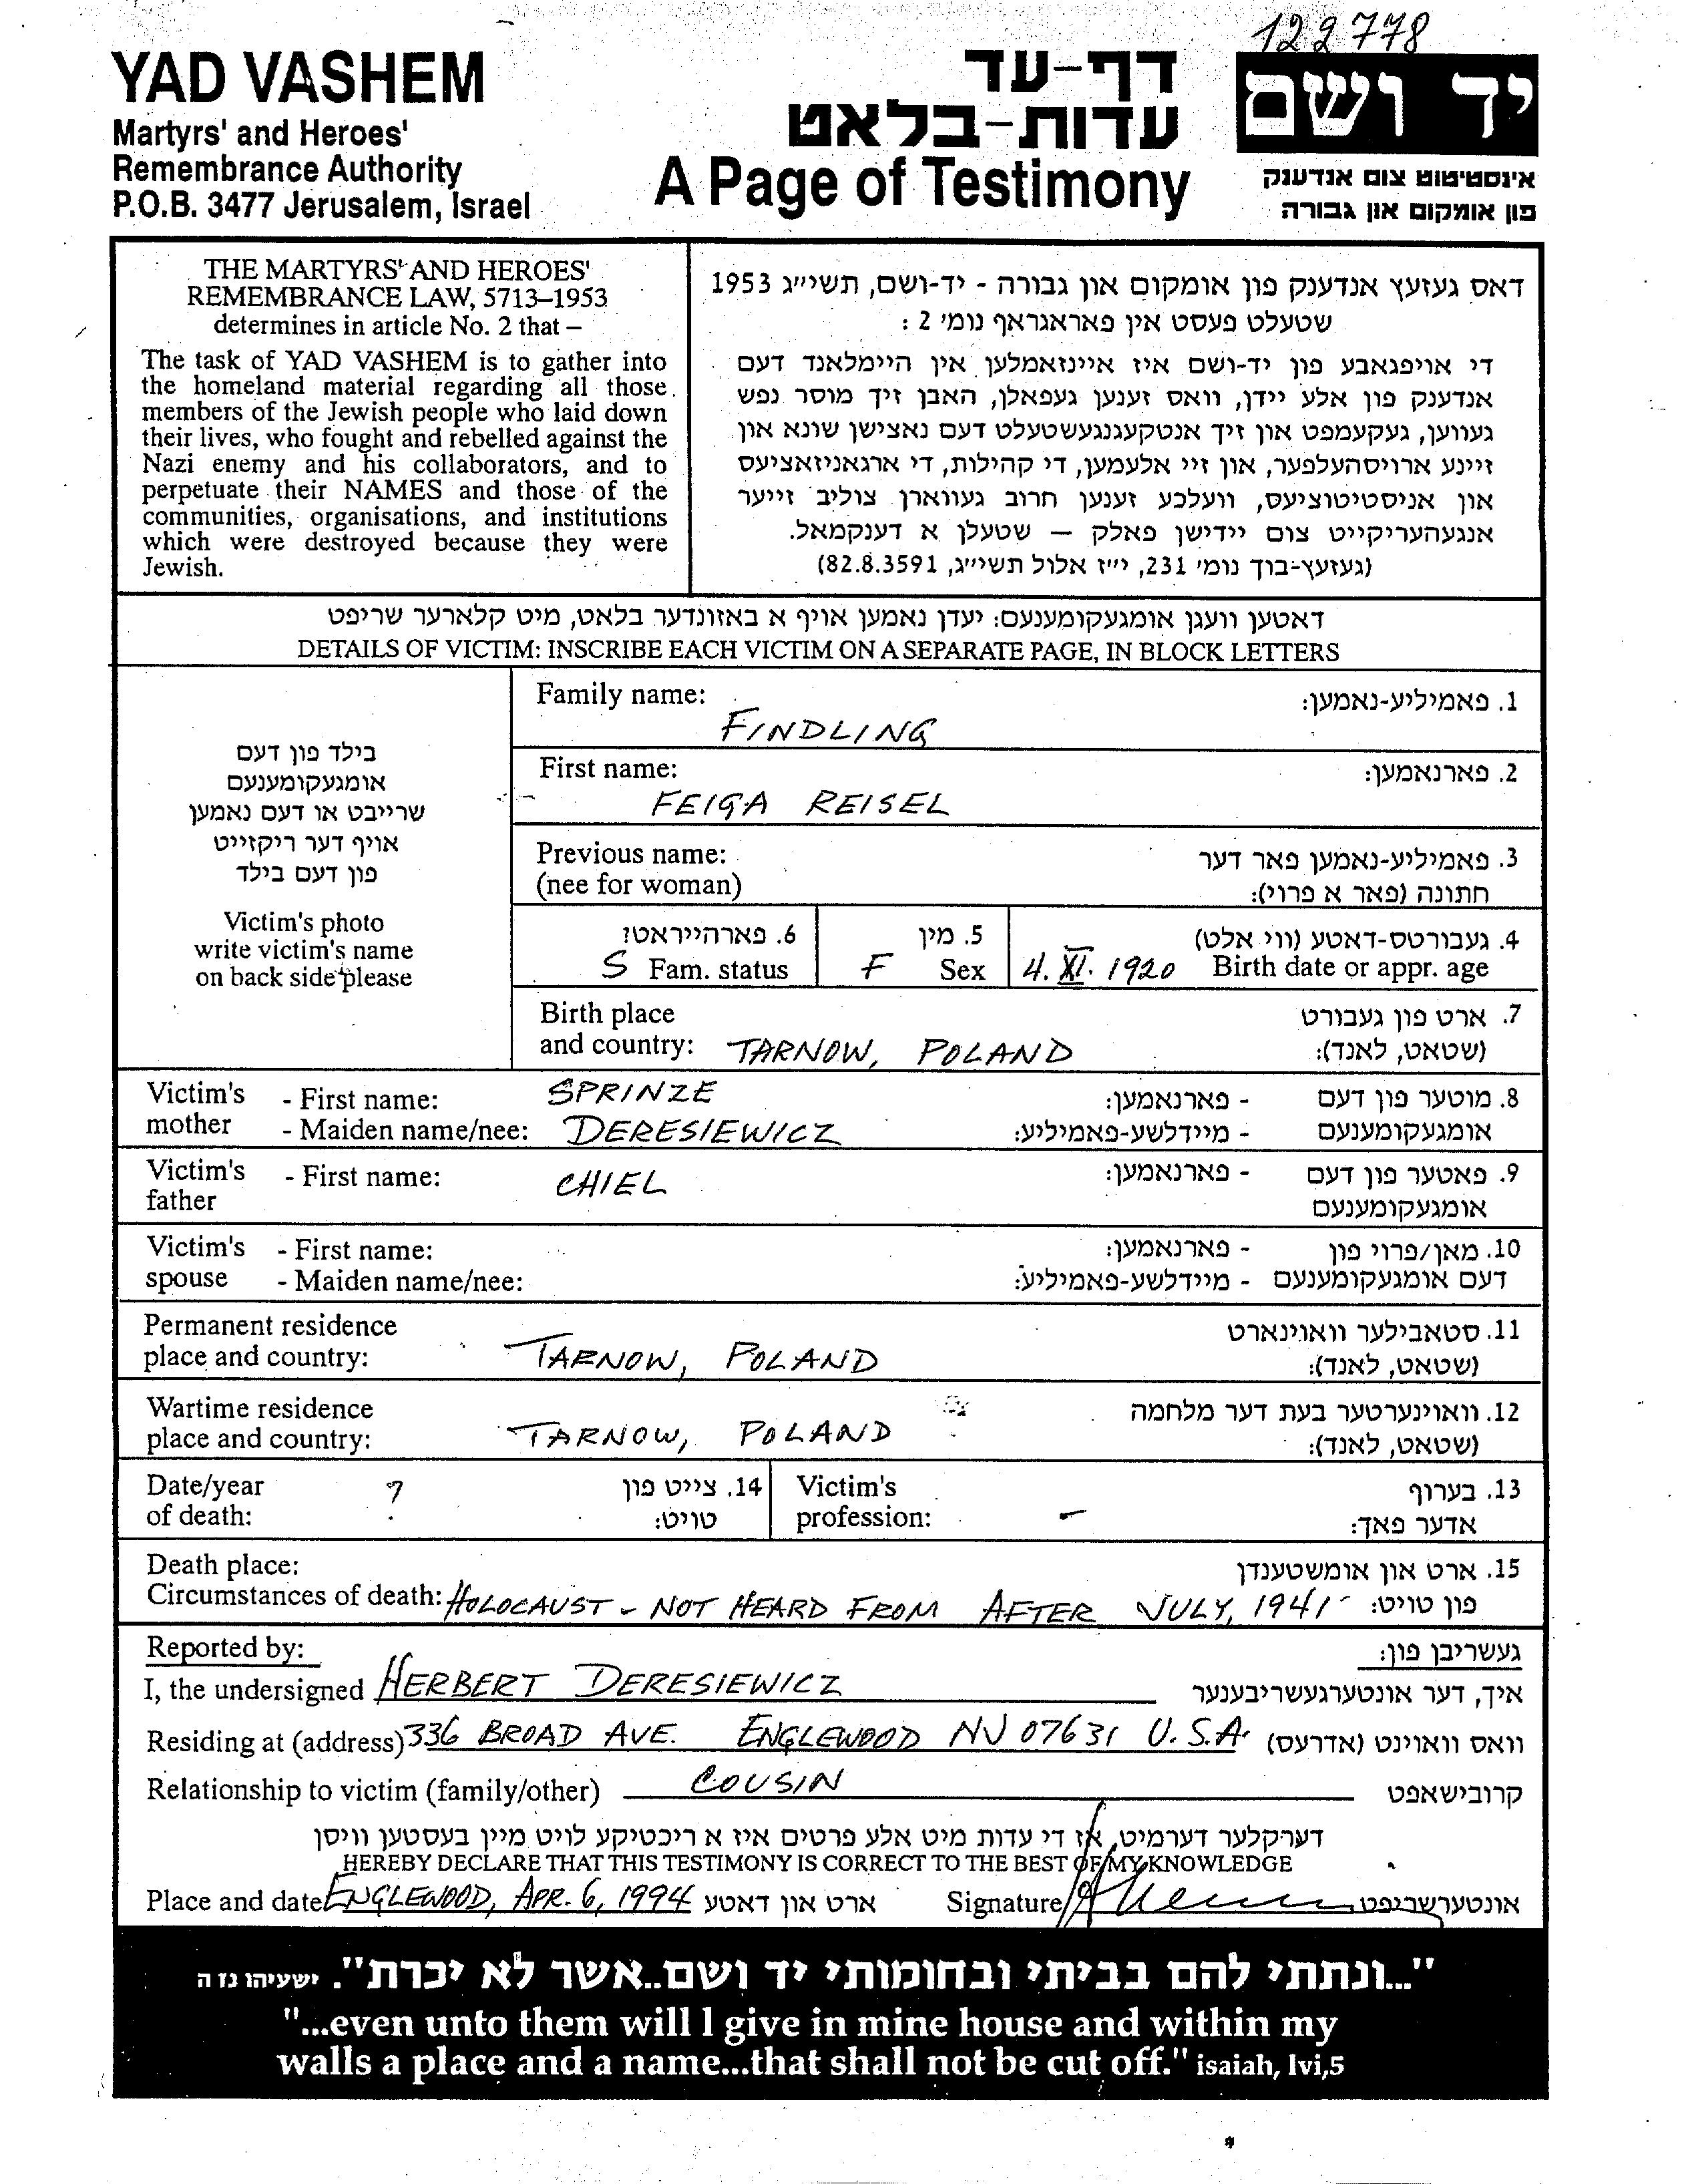 122778
YAD VASHEM
Martyrs' and Heroes'
Remembrance Authority
P.O.B. 3477 Jerusalem, Israel
דף-עד
עדות-בלאט
A Page of Testimony
יד ושם
אינסטיטוט צום אנדענק
פון אומקום און גבורה
THE MARTYRS' AND HEROES'
REMEMBRANCE LAW, 5713–1953
determines in article No. 2 that –
The task of YAD VASHEM is to gather into
the homeland material regarding all those
members of the Jewish people who laid down
their lives, who fought and rebelled against the
Nazi enemy and his collaborators, and to
perpetuate their NAMES and those of the
communities, organisations, and institutions
which were destroyed because they were
Jewish.
דאס געזעץ אנדענק פון אומקום און גבורה - יד-ושם, תשי״ג 1953
שטעלט פעסט אין פאראגראף נומ׳ 2 :
די אויפגאבע פון יד-ושם איז איינזאמלען אין היימלאנד דעם
אנדענק פון אלע יידן, וואס זענען געפאלן, האבן זיך מוסר נפש
געווען, געקעמפט און זיך אנטקעגנגעשטעלט דעם נאצישן שונא און
זיינע ארויסהעלפער, און זיי אלעמען, די קהילות, די ארגאניזאציעס
און אניסטיטוציעס, וועלכע זענען חרוב געווארן צוליב זייער
אנגעהעריקייט צום יידישן פאלק – שטעלן א דענקמאל.
(געזעץ-בוך נומ׳ 231, י״ז אלול תשי״ג, 82.8.3591)
דאטען וועגן אומגעקומענעם: יעדן נאמען אויף א באזונדער בלאט, מיט קלארער שריפט
DETAILS OF VICTIM: INSCRIBE EACH VICTIM ON A SEPARATE PAGE, IN BLOCK LETTERS
בילד פון דעם
אומגעקומענעם
שרייבט או דעם נאמען
אויף דער ריקזייט
פון דעם בילד
Victim's photo
write victim's name
on back side please
Family name: 1. פאמיליע-נאמען:
FINDLING
First name: 2. פארנאמען:
FEIGA REISEL
Previous name: 3. פאמיליע-נאמען פאר דער
(nee for woman) חתונה (פאר א פרוי):
6. פארהייראט? 5. מין 4. געבורטס-דאטע (ווי אלט)
S Fam. status F Sex 4. XI. 1920 Birth date or appr. age
Birth place 7. ארט פון געבורט
and country: TARNOW, POLAND (שטאט, לאנד):
Victim's - First name: SPRINZE - פארנאמען: 8. מוטער פון דעם
mother - Maiden name/nee: DERESIEWICZ - מיידלשע-פאמיליע: אומגעקומענעם
Victim's - First name: CHIEL - פארנאמען: 9. פאטער פון דעם
father אומגעקומענעם
Victim's - First name: - פארנאמען: 10. מאן/פרוי פון
spouse - Maiden name/nee: - מיידלשע-פאמיליע: דעם אומגעקומענעם
Permanent residence 11. סטאבילער וואוינארט
place and country: TARNOW, POLAND (שטאט, לאנד):
Wartime residence 12. וואוינערטער בעת דער מלחמה
place and country: TARNOW, POLAND (שטאט, לאנד):
Date/year ? 14. צייט פון Victim's 13. בערוף
of death: טויט: profession: – אדער פאך:
Death place: 15. ארט און אומשטענדן
Circumstances of death: HOLOCAUST - NOT HEARD FROM AFTER JULY, 1941 פון טויט:
Reported by: געשריבן פון:
I, the undersigned HERBERT DERESIEWICZ איך, דער אונטערגעשריבענער
Residing at (address) 336 BROAD AVE. ENGLEWOOD NJ 07631 U.S.A. וואס וואוינט (אדרעס)
Relationship to victim (family/other) COUSIN קרובישאפט
דערקלער דערמיט, אז די עדות מיט אלע פרטים איז א ריכטיקע לויט מיין בעסטען וויסן
HEREBY DECLARE THAT THIS TESTIMONY IS CORRECT TO THE BEST OF MY KNOWLEDGE
Place and date ENGLEWOOD, APR. 6, 1994 ארט און דאטע Signature אונטערשריפט
"...ונתתי להם בביתי ובחומותי יד ושם..אשר לא יכרת". ישעיהו נז ה
"...even unto them will I give in mine house and within my
walls a place and a name...that shall not be cut off." isaiah, lvi,5